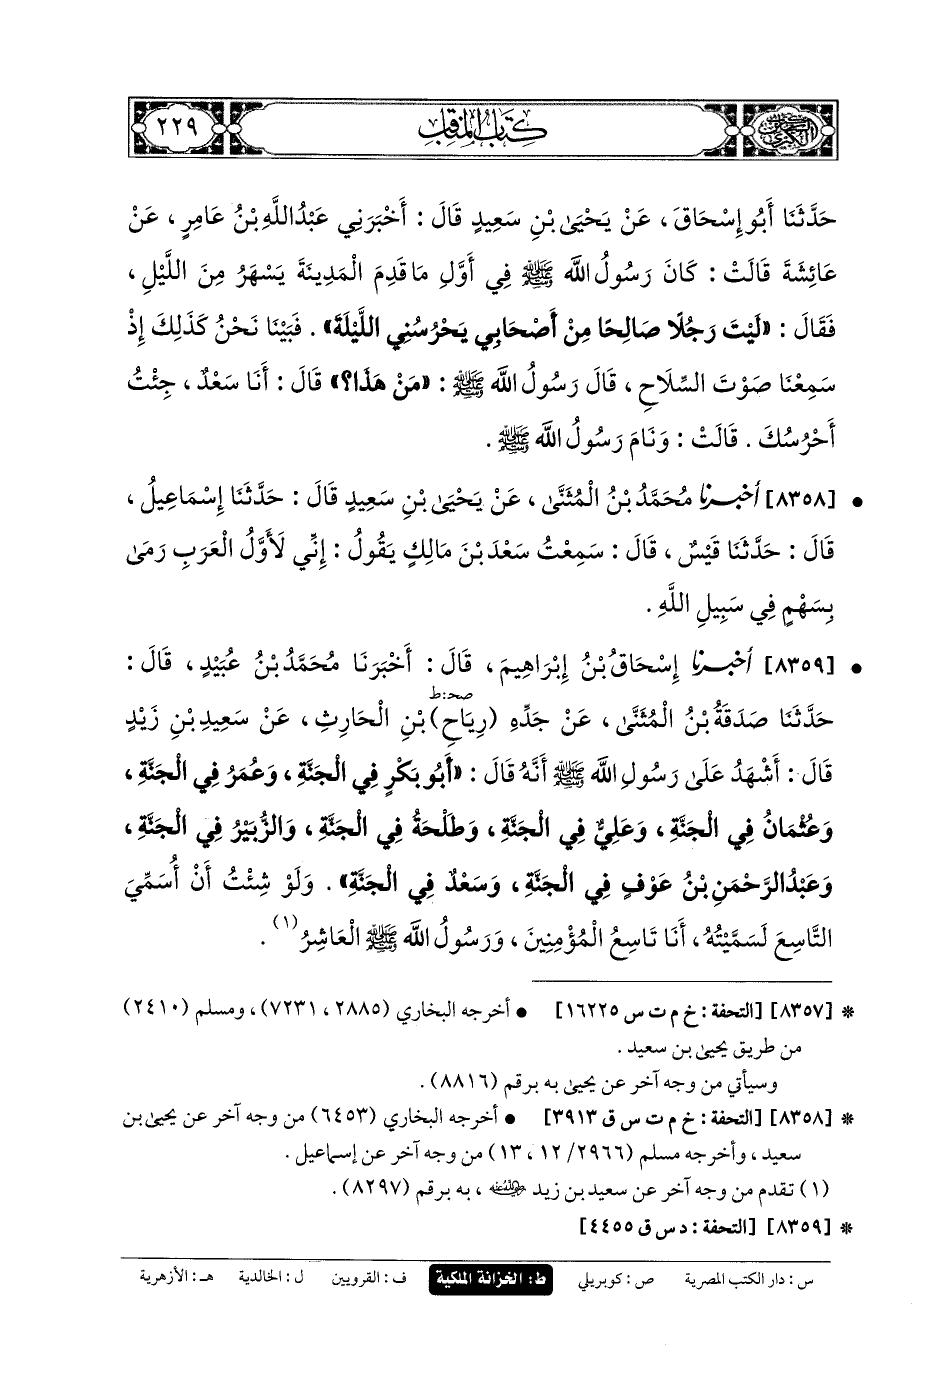 السنن الكبرى
كتاب المناقب
٢٢٩
حَدَّثَنَا أَبُو إِسْحَاقَ ، عَنْ يَحْيَىٰ بْنِ سَعِيدٍ قَالَ : أَخْبَرَنِي عَبْدُ اللَّهِ بْنُ عَامِرٍ ، عَنْ
عَائِشَةَ قَالَتْ : كَانَ رَسُولُ اللَّه ﷺ فِي أَوَّلِ مَا قَدِمَ الْمَدِينَةَ يَسْهَرُ مِنَ اللَّيْلِ ،
فَقَالَ : «لَيْتَ رَجُلًا صَالِحًا مِنْ أَصْحَابِي يَحْرُسُنِي اللَّيْلَةَ» . فَبَيْنَا نَحْنُ كَذَلِكَ إِذْ
سَمِعْنَا صَوْتَ السِّلَاحِ ، قَالَ رَسُولُ اللَّه ﷺ : «مَنْ هَذَا؟» قَالَ : أَنَا سَعْدٌ ، جِئْتُ
أَحْرُسُكَ . قَالَتْ : وَنَامَ رَسُولُ اللَّه ﷺ .
• [٨٣٥٨] أخبرنا مُحَمَّدُ بْنُ الْمُثَنَّىٰ ، عَنْ يَحْيَىٰ بْنِ سَعِيدٍ قَالَ : حَدَّثَنَا إِسْمَاعِيلُ ،
قَالَ : حَدَّثَنَا قَيْسٌ ، قَالَ : سَمِعْتُ سَعْدَ بْنَ مَالِكٍ يَقُولُ : إِنِّي لَأَوَّلُ الْعَرَبِ رَمَىٰ
بِسَهْمٍ فِي سَبِيلِ اللَّهِ .
• [٨٣٥٩] أخبرنا إِسْحَاقُ بْنُ إِبْرَاهِيمَ ، قَالَ : أَخْبَرَنَا مُحَمَّدُ بْنُ عُبَيْدٍ ، قَالَ :
صحـ:ط
حَدَّثَنَا صَدَقَةُ بْنُ الْمُثَنَّىٰ ، عَنْ جَدِّهِ (رِيَاحِ) بْنِ الْحَارِثِ ، عَنْ سَعِيدِ بْنِ زَيْدٍ
قَالَ : أَشْهَدُ عَلَىٰ رَسُولِ اللَّه ﷺ أَنَّهُ قَالَ : «أَبُو بَكْرٍ فِي الْجَنَّةِ ، وَعُمَرُ فِي الْجَنَّةِ ،
وَعُثْمَانُ فِي الْجَنَّةِ ، وَعَلِيٌّ فِي الْجَنَّةِ ، وَطَلْحَةُ فِي الْجَنَّةِ ، وَالزُّبَيْرُ فِي الْجَنَّةِ ،
وَعَبْدُ الرَّحْمَنِ بْنُ عَوْفٍ فِي الْجَنَّةِ ، وَسَعْدٌ فِي الْجَنَّةِ» . وَلَوْ شِئْتُ أَنْ أُسَمِّيَ
التَّاسِعَ لَسَمَّيْتُهُ ، أَنَا تَاسِعُ الْمُؤْمِنِينَ ، وَرَسُولُ اللَّه ﷺ الْعَاشِرُ(١) .
* [٨٣٥٧] [التحفة : خ م ت س ١٦٢٢٥] • أخرجه البخاري (٢٨٨٥ ، ٧٢٣١) ، ومسلم (٢٤١٠)
من طريق يحيى بن سعيد .
وسيأتي من وجه آخر عن يحيى به برقم (٨٨١٦) .
* [٨٣٥٨] [التحفة : خ م ت س ق ٣٩١٣] • أخرجه البخاري (٦٤٥٣) من وجه آخر عن يحيى بن
سعيد ، وأخرجه مسلم (٢٩٦٦/ ١٢ ، ١٣) من وجه آخر عن إسماعيل .
(١) تقدم من وجه آخر عن سعيد بن زيد رضي الله عنه ، به برقم (٨٢٩٧) .
* [٨٣٥٩] [التحفة : د س ق ٤٤٥٥]
س : دار الكتب المصرية ص : كوبريلي ط : الخزانة الملكية ف : القرويين ل : الخالدية هـ : الأزهرية